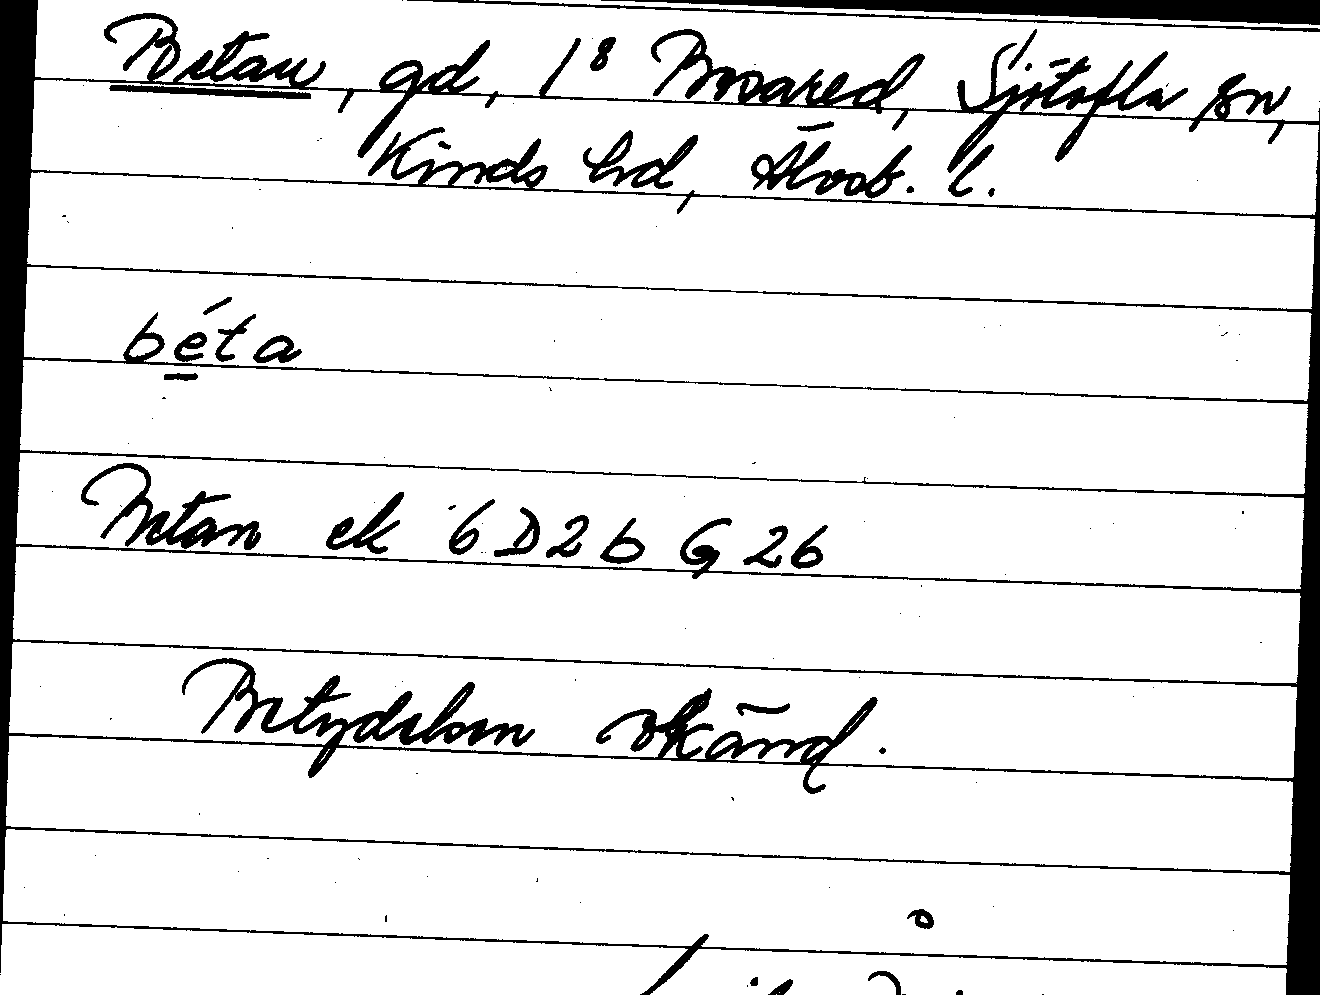 Betan, gd, 1⁸ Bosared, Sjötofla sn,
Kinds hrd, Älvsb. l.
béta
Betan ek 6D2b G26
Betydelsen okänd.